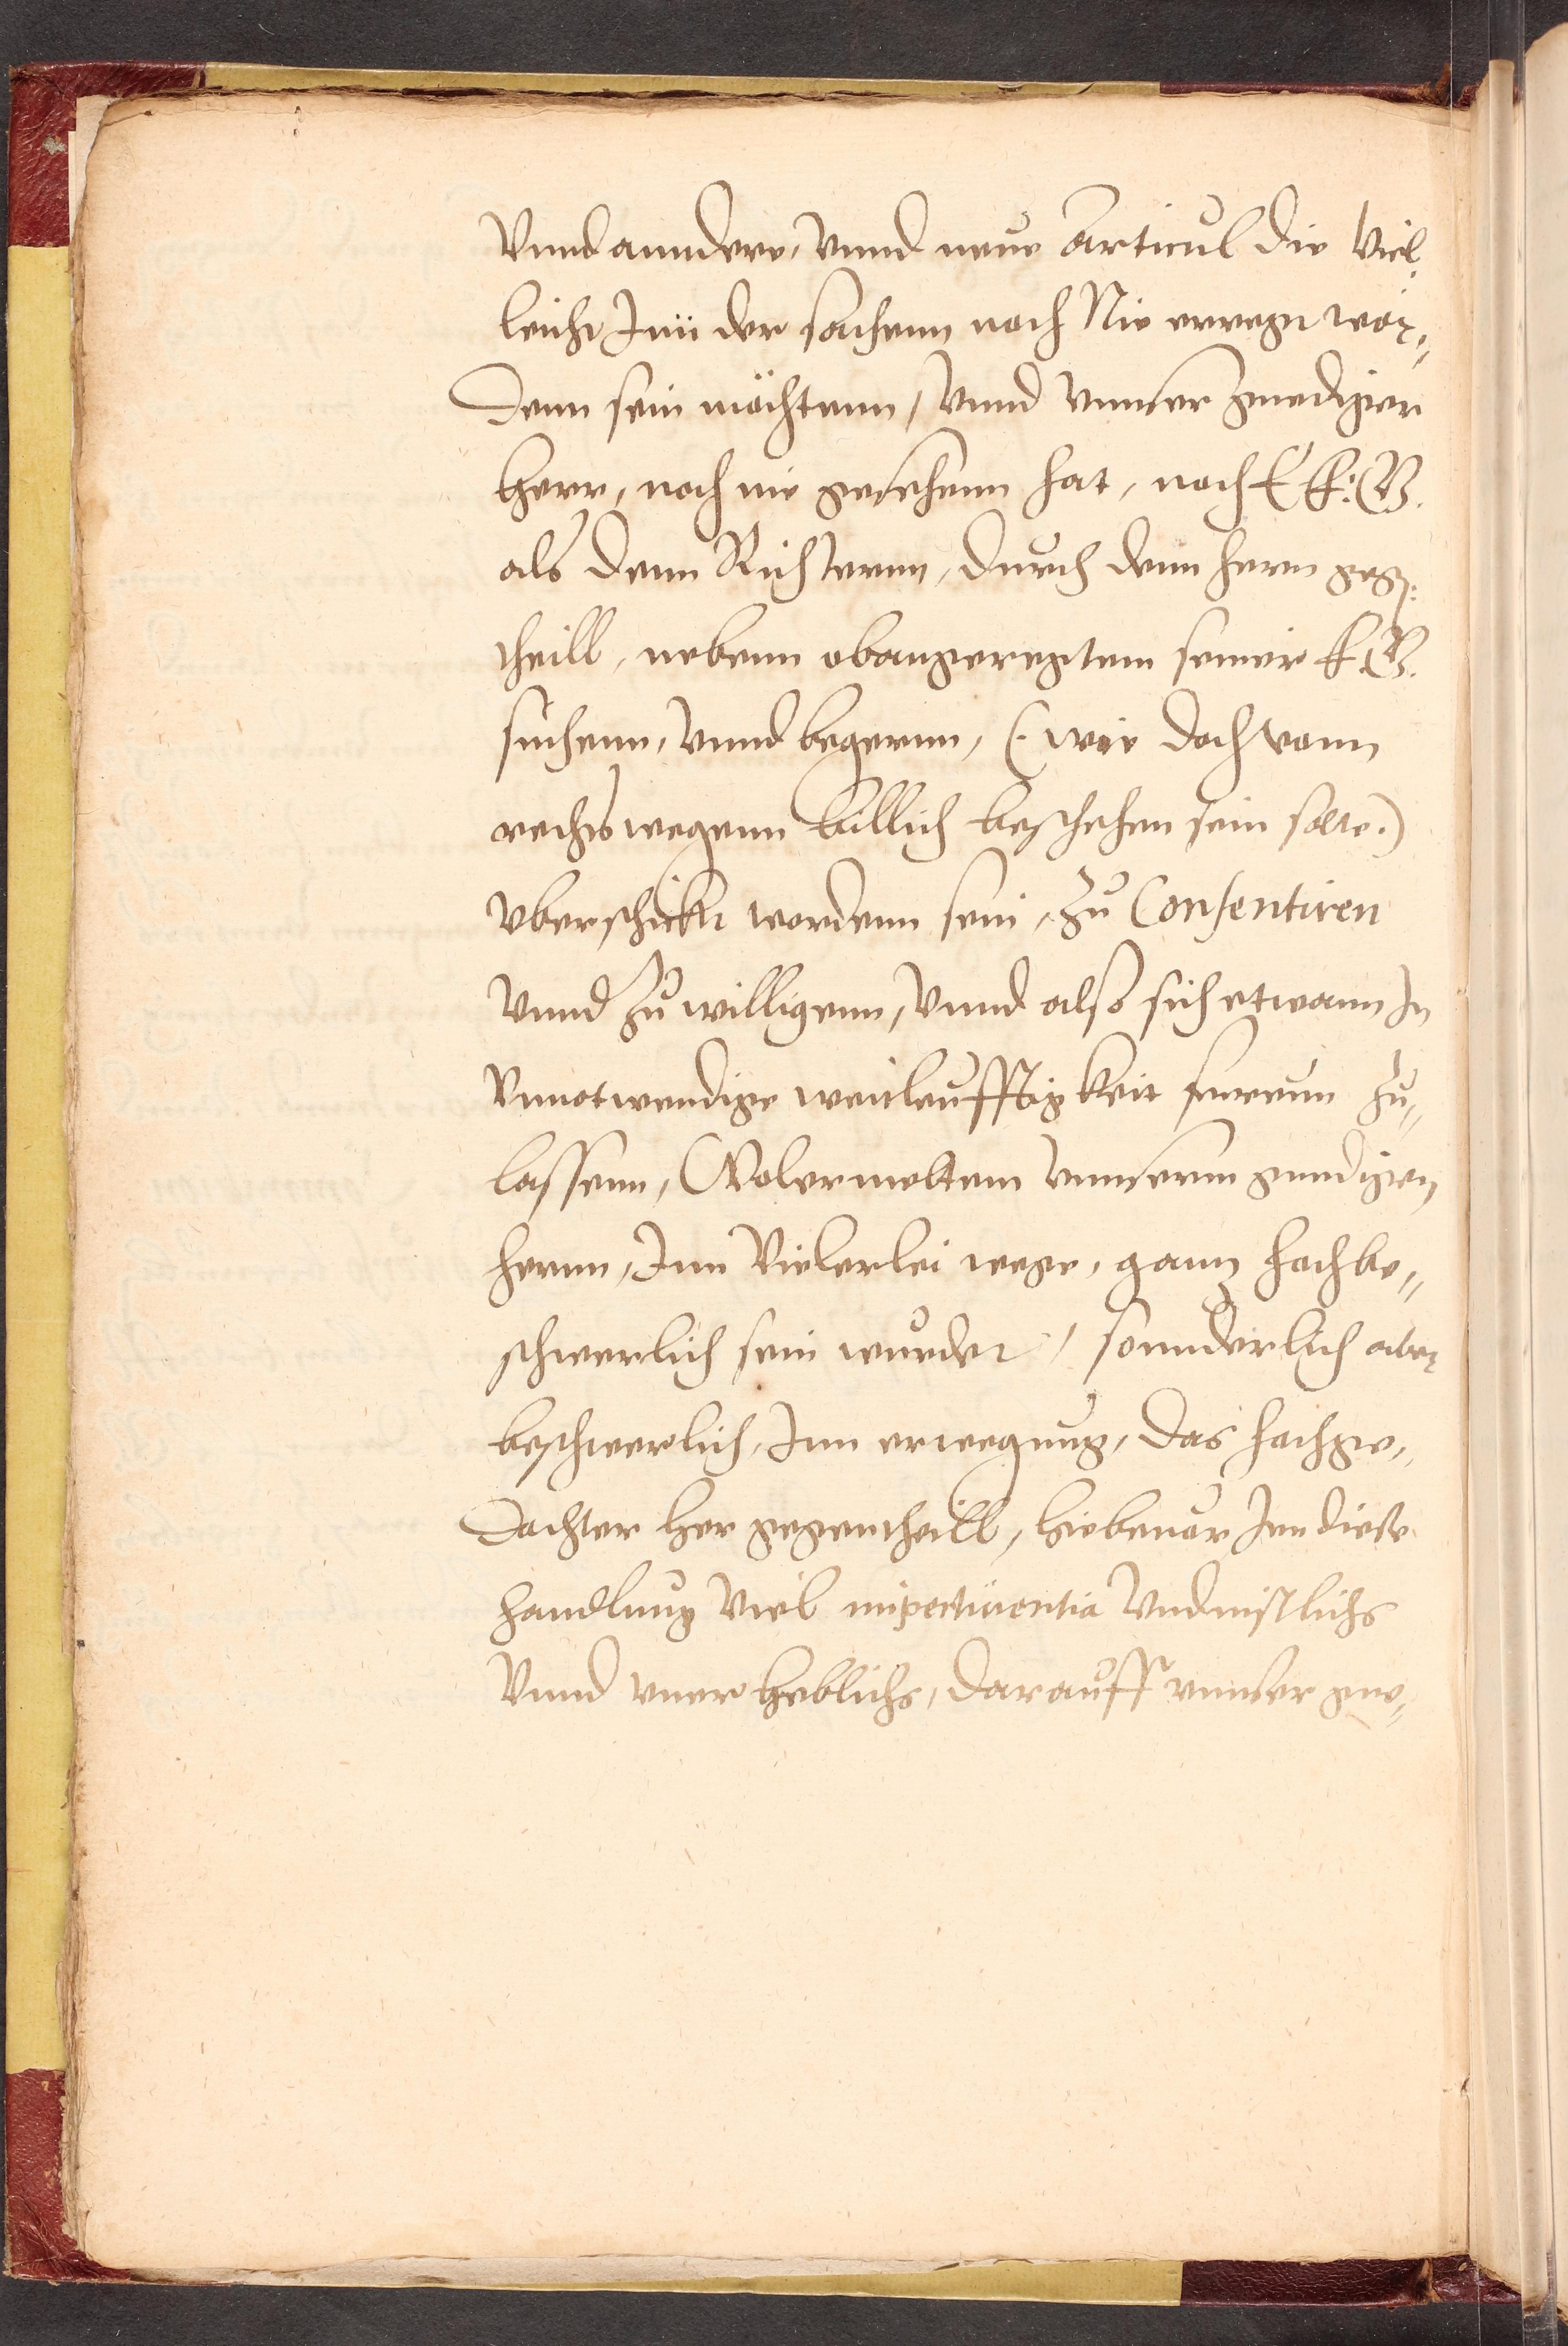 Vnnd anndere, vnnd neue Articul die viel¬
leicht Inn der sachenn noch Nie erregt wor¬
denn sein möchtenn, Vnnd vnnser gnediger
herr, noch nie gesehenn hat, noch E. F. G.
als denn Richternn, durch denn herrn geg¬
theill, nebenn obangeregtem seiner F. G.
suchenn, vnnd begernn, (wie doch vonn
rechts wegenn billich beschehen sein solte.)
vberschickt wordenn sein, zu Consentiren
vnnd zu willigenn, vnnd also sich etwann In
vnnotwendige weitleufftigkeit furenn zu¬
lassenn, Wolermeltem vnnserm gnedigen
hernn, Inn Vielerlei wege, gantz hochbe¬
schwerlich sein wurdet, sonnderlich aber
beschwerlich, Inn erwegung, das hochge¬
dachter her gegentheill, hiebeuor Inn dieser
handlung viel impertinentia Vndinstlichs
Vnnd vnerheblichs, darauff vnnser gne¬